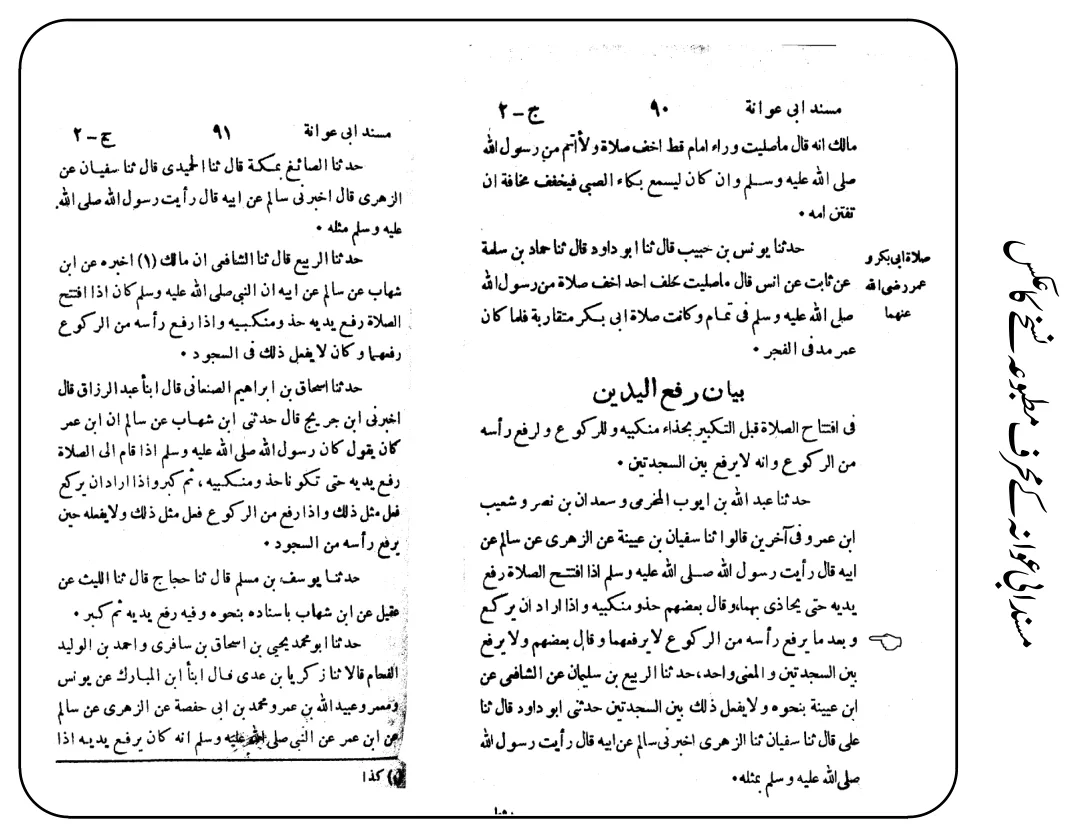 مسند ابى عوانة ٩٠ ج - ٢
مالك انه قال ماصليت وراء امام قط اخف صلاة ولا أتم من رسول الله
صلى الله عليه وسلم وان كان ليسمع بكاء الصبى فيخفف مخافة ان
تفتن امه •
حدثنا يونس بن حبيب قال ثنا ابو داود قال ثنا حماد بن سلمة
عن ثابت عن انس قال ماصليت خلف احد اخف صلاة من رسول الله
صلى الله عليه وسلم فى تمام وكانت صلاة ابى بكر متقاربة فلما كان
عمر مد فى الفجر •
صلاة ابى بكر و
عمر رضى الله
عنهما
بيان رفع اليدين
فى افتتاح الصلاة قبل التكبير بحذاء منكبيه وللركوع ولرفع رأسه
من الركوع وانه لا يرفع بين السجدتين •
حدثنا عبد الله بن ايوب المخرمى وسعدان بن نصر وشعيب
ابن عمرو فى آخرين قالوا ثنا سفيان بن عيينة عن الزهرى عن سالم عن
ابيه قال رأيت رسول الله صلى الله عليه وسلم اذا افتتح الصلاة رفع
يديه حتى يحاذى بهما، وقال بعضهم حذو منكبيه واذا اراد ان يركع
وبعد ما يرفع رأسه من الركوع لا يرفعهما وقال بعضهم ولا يرفع
بين السجدتين والمعنى واحد، حدثنا الربيع بن سليمان عن الشافعى عن
ابن عيينة بنحوه ولا يفعل ذلك بين السجدتين حدثنى ابو داود قال ثنا
على قال ثنا سفيان ثنا الزهرى اخبرنى سالم عن ابيه قال رأيت رسول الله
صلى الله عليه وسلم بمثله •
مسند ابى عوانة ٩١ ج - ٢
حدثنا الصائغ بمكة قال ثنا الحميدى قال ثنا سفيان عن
الزهرى قال اخبرنى سالم عن ابيه قال رأيت رسول الله صلى الله
عليه وسلم مثله •
حدثنا الربيع قال ثنا الشافعى ان مالك (١) اخبره عن ابن
شهاب عن سالم عن ابيه ان النبى صلى الله عليه وسلم كان اذا افتتح
الصلاة رفع يديه حذو منكبيه واذا رفع رأسه من الركوع
رفعهما وكان لا يفعل ذلك فى السجود •
حدثنا اسحاق بن ابراهيم الصنعانى قال انبأ عبد الرزاق قال
اخبرنى ابن جريج قال حدثنى ابن شهاب عن سالم ان ابن عمر
كان يقول كان رسول الله صلى الله عليه وسلم اذا قام الى الصلاة
رفع يديه حتى تكونا حذو منكبيه، ثم كبر واذا اراد ان يركع
فعل مثل ذلك واذا رفع من الركوع فعل مثل ذلك ولا يفعله حين
يرفع رأسه من السجود •
حدثنا يوسف بن مسلم قال ثنا حجاج قال ثنا الليث عن
عقيل عن ابن شهاب باسناده بنحوه وفيه رفع يديه ثم كبر •
حدثنا ابو محمد يحيى بن اسحاق بن سافرى واحمد بن الوليد
الفحام قالا ثنا زكريا بن عدى قال انبأ ابن المبارك عن يونس
ومعمر وعبيد الله بن عمرو ومحمد بن ابى حفصة عن الزهرى عن سالم
عن ابن عمر عن النبى صلى الله عليه وسلم انه كان يرفع يديه اذا
(١) كذا
مسند ابی عوانہ کے محرف مطبوعہ نسخے کا عکس